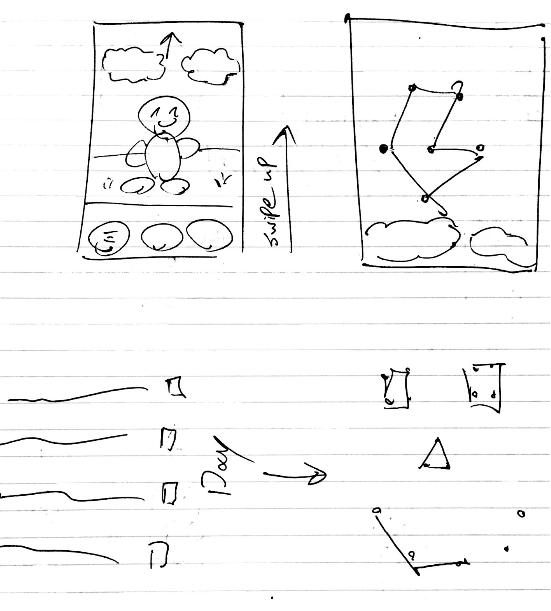 swipe up
Day